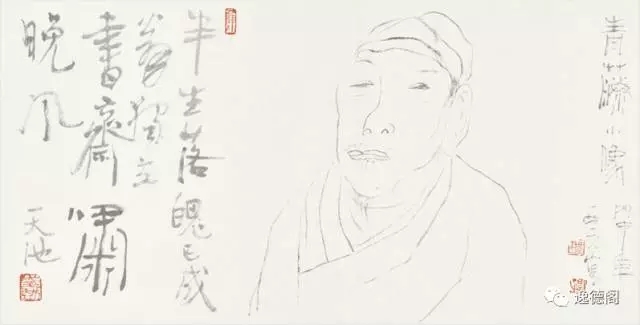 青藤小像
半生落魄已成
翁獨立
書齋嘯
晚风
天池
逸德阁